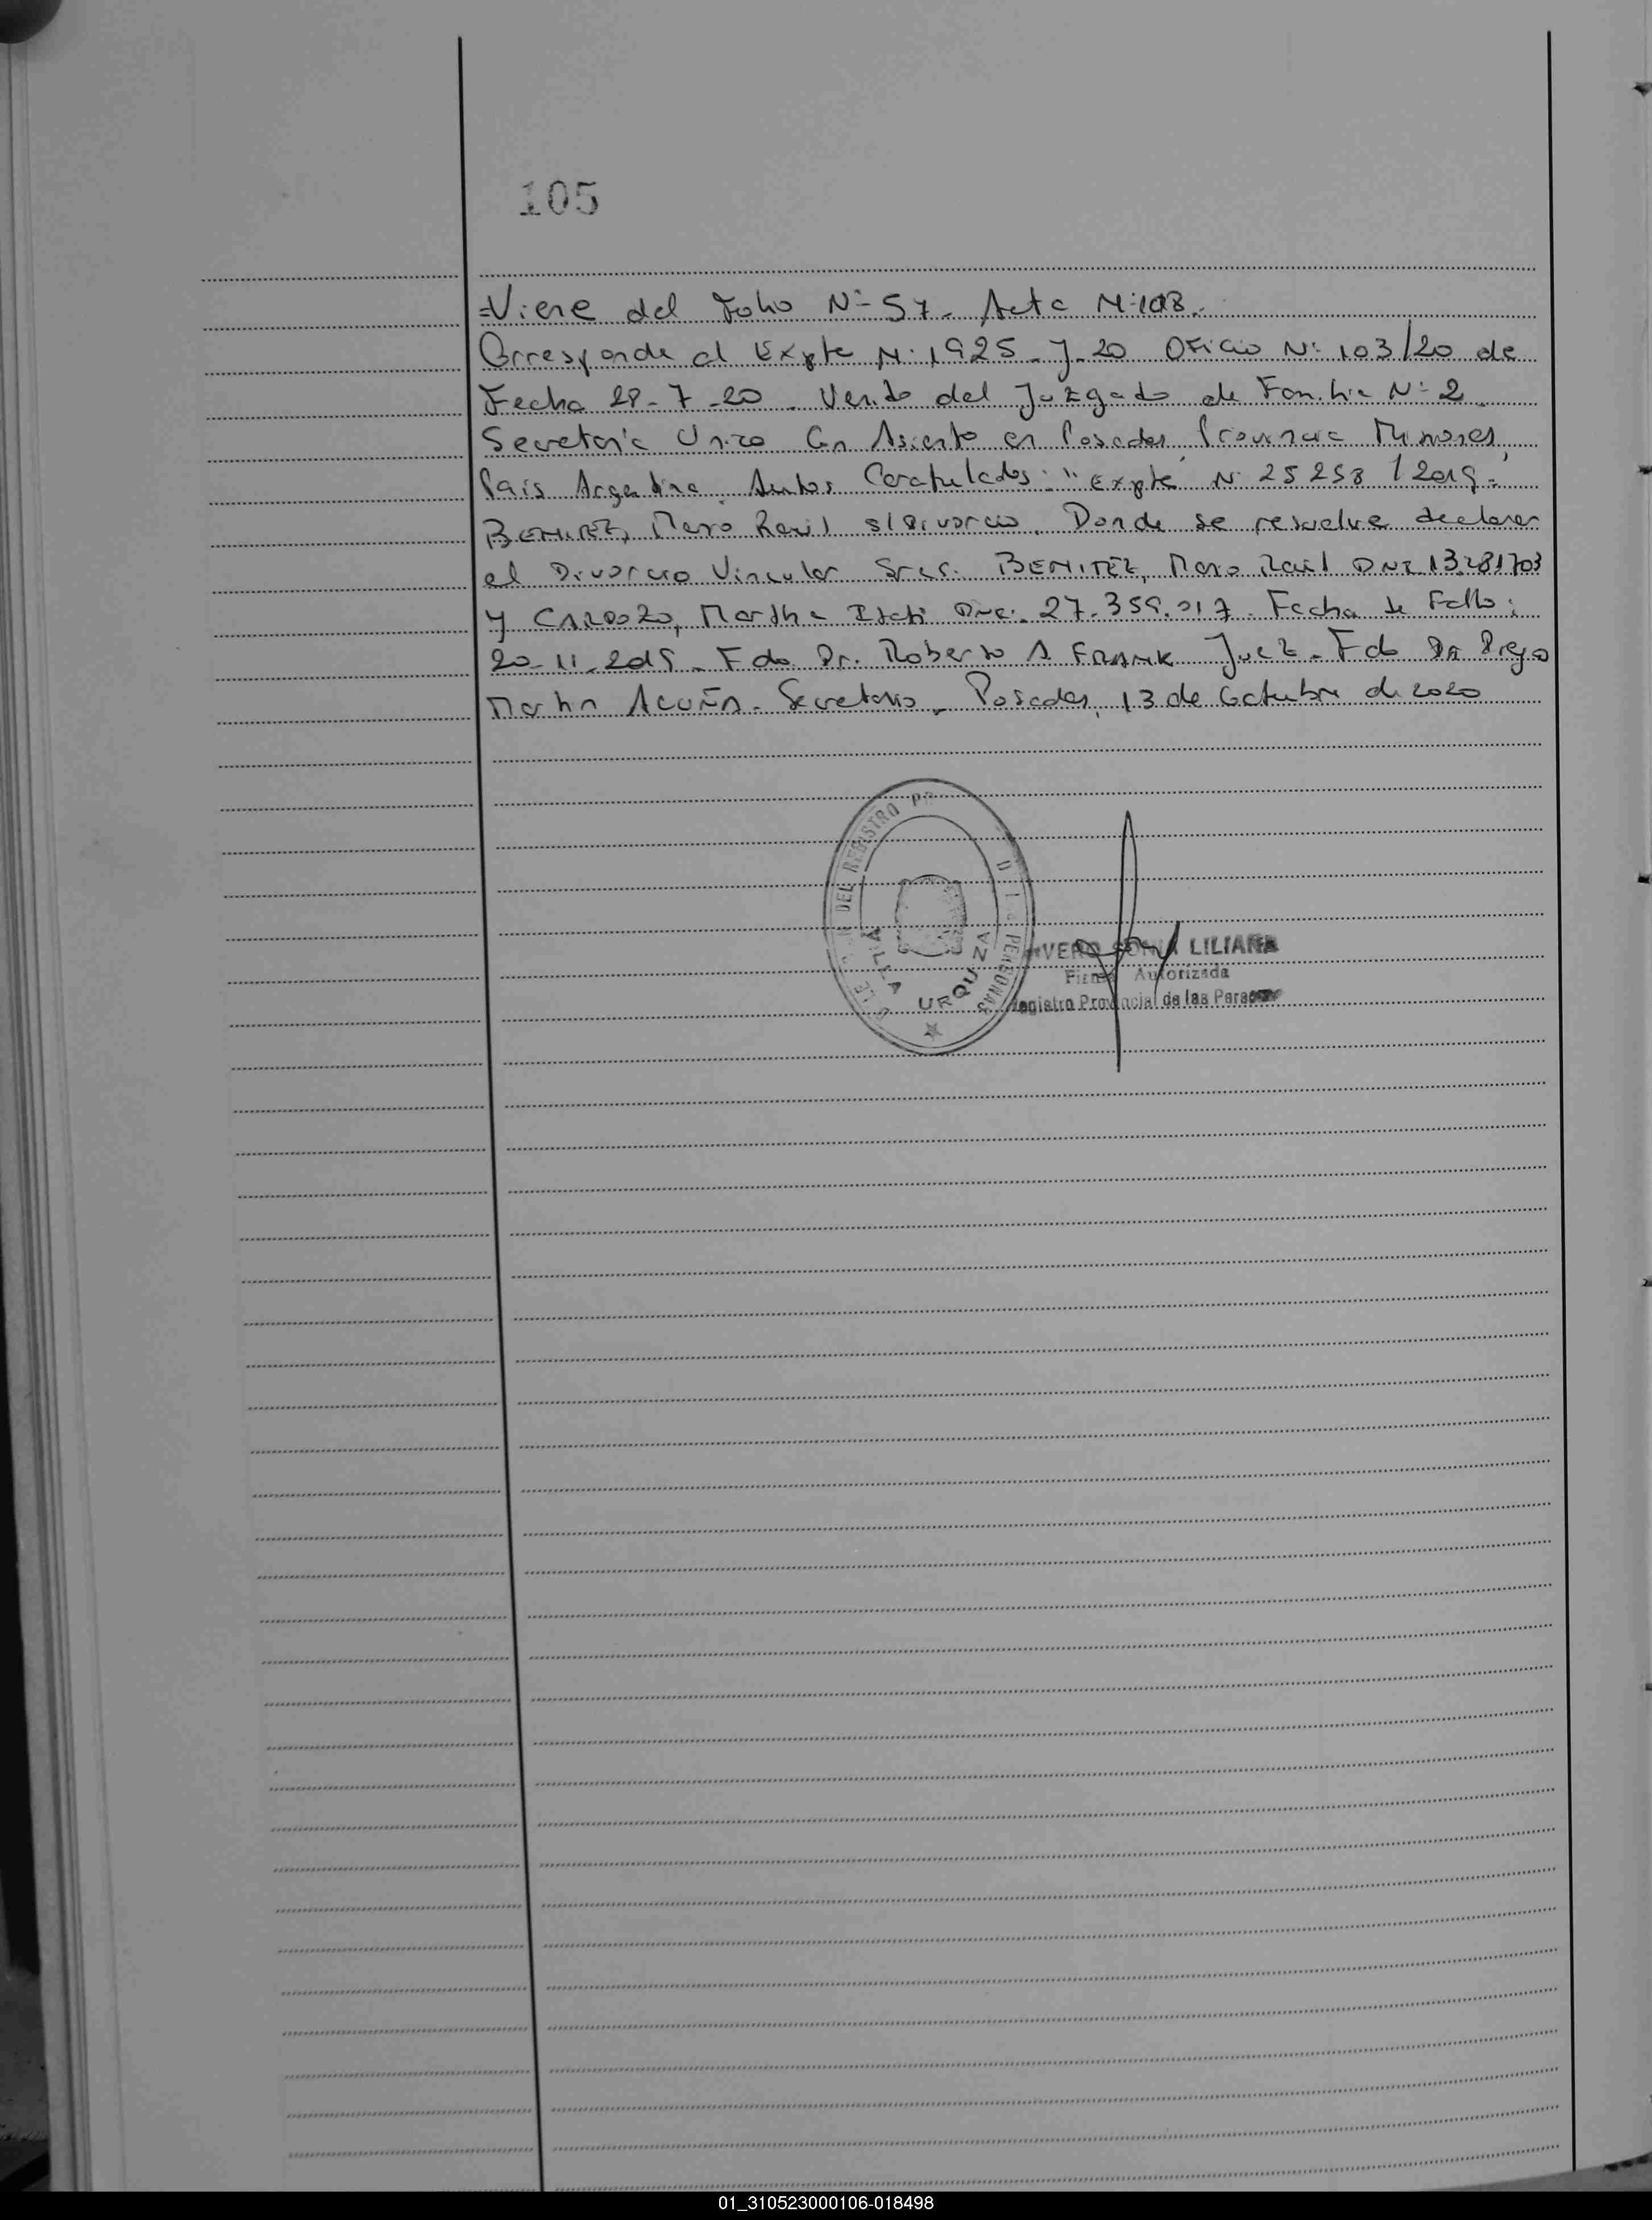 105
=Viene del Folio Nº 57. Acta Nº 108.
Corresponde al Expte Nº 1925-J-20 Oficio Nº 103/20 de
Fecha 28-7-20. Venido del Juzgado de Familia Nº 2.
Secretaría Unica Con Asiento en Posadas Provincia Misiones,
País Argentina. Autos Caratulados: "Expte Nº 25258/2019.
BENITEZ, Mario Raúl s/Divorcio. Donde se resuelve declarar
el Divorcio Vincular Sres. BENITEZ, Mario Raúl DNI 13.281703
y CARDOZO, Martha Itatí DNI: 27.359.017. Fecha de Fallo:
20-11-2019. Fdo Dr. Roberto A FRANK Juez. Fdo Dr Diego
Martin ACUÑA. Secretario. Posadas, 13 de Octubre de 2020
DEL REGISTRO PERSONAS
VILLA URQUIZA
LILIANA
Firma Autorizada
Registro Provincial de las Personas
01_310523000106-018498